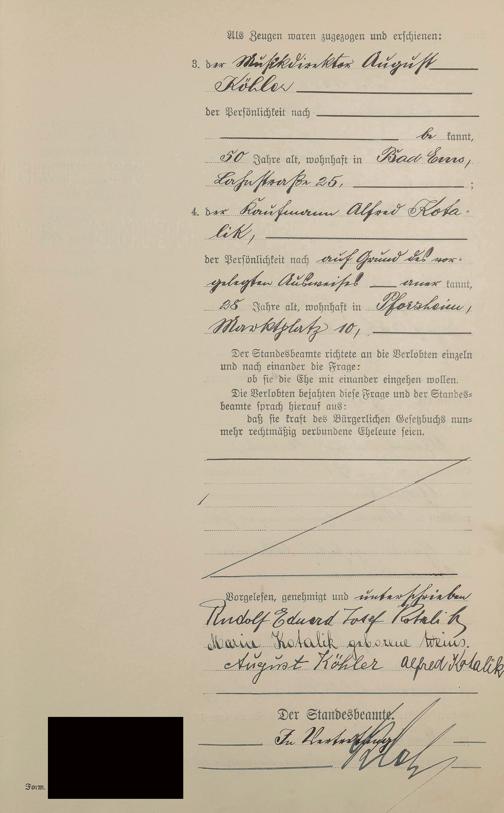 Als Zeugen waren zugezogen und erschienen:
3. der Musikdirektor August
Köhler
der Persönlichkeit nach
be kannt,
50 Jahre alt, wohnhaft in Bad Ems,
Lahnstraße 25, ;
4. der Kaufmann Alfred Kota-
lik,
der Persönlichkeit nach auf Grund des vor-
gelegten Ausweises aner kannt,
25 Jahre alt, wohnhaft in Pforzheim,
Marktplatz 10,
Der Standesbeamte richtete an die Verlobten einzeln
und nach einander die Frage:
ob sie die Ehe mit einander eingehen wollen.
Die Verlobten bejahten diese Frage und der Standes-
beamte sprach hierauf aus:
daß sie kraft des Bürgerlichen Gesetzbuchs nun-
mehr rechtmäßig verbundene Eheleute seien.
Vorgelesen, genehmigt und unterschrieben
Rudolf Eduard Josef Kotalik
Maria Kotalik geborene Weins.
August Köhler Alfred Kotalik
Der Standesbeamte.
In Vertretung
Form.